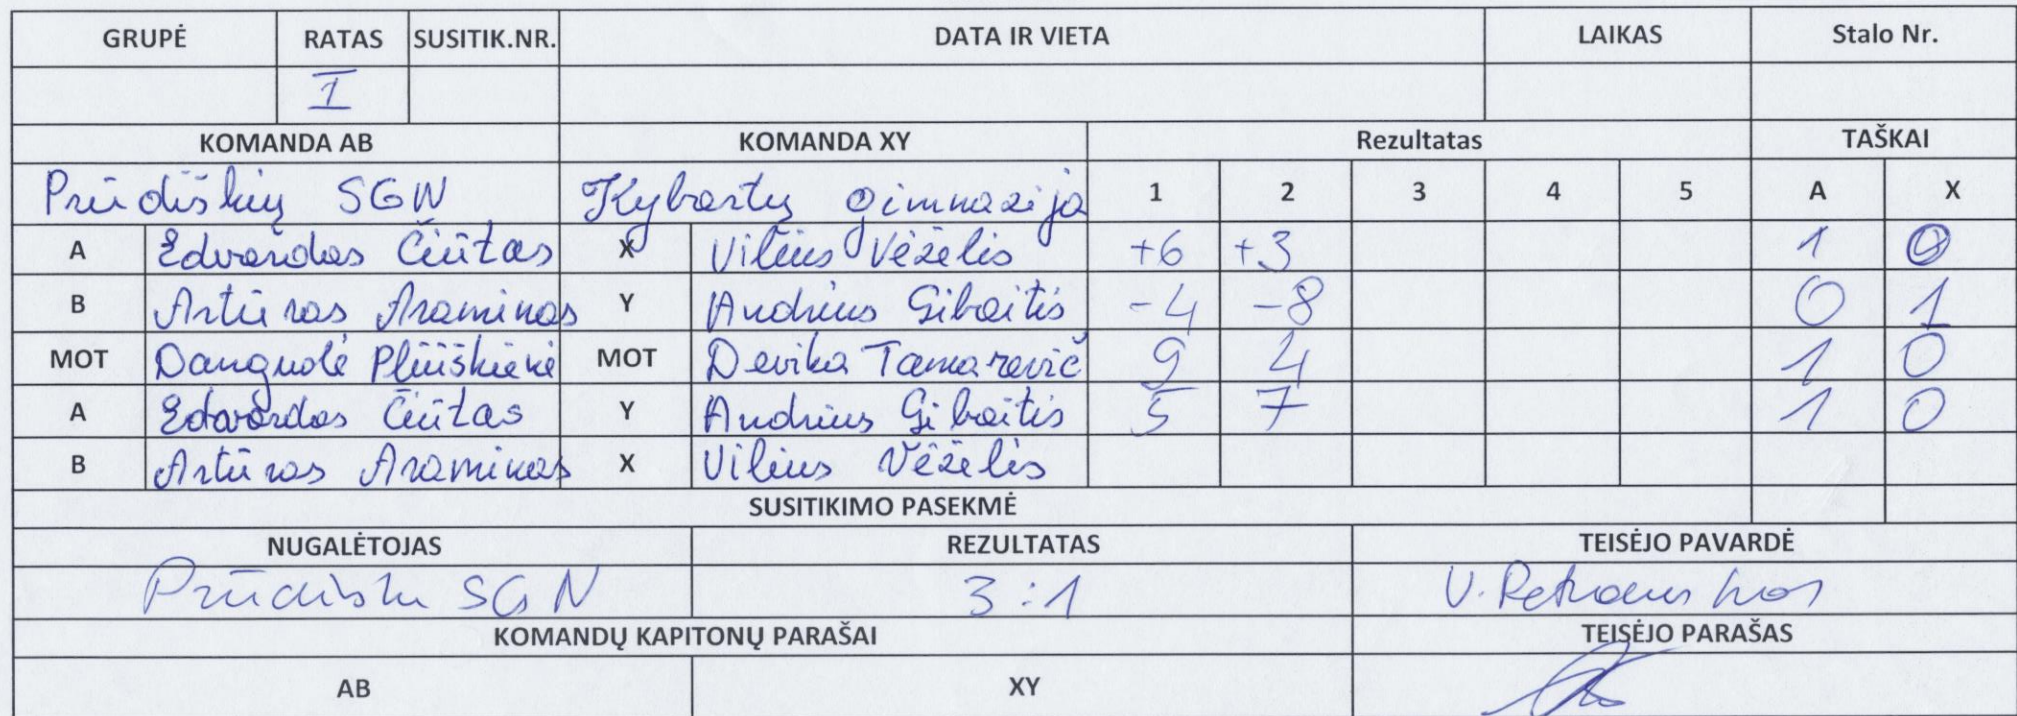 GRUPĖ RATAS SUSITIK.NR. DATA IR VIETA LAIKAS Stalo Nr.
I
KOMANDA AB KOMANDA XY Rezultatas TAŠKAI
Prūdiškių SGN Kybartų gimnazija 1 2 3 4 5 A X
A Edvardas Čiūtas X Vilius Vėželis +6 +3 1 0
B Artūras Araminas Y Andrius Gibaitis -4 -8 0 1
MOT Danguolė Pliuškienė MOT Devika Tamarevič 9 4 1 0
A Edvardas Čiūtas Y Andrius Gibaitis 5 7 1 0
B Artūras Araminas X Vilius Vėželis
SUSITIKIMO PASEKMĖ
NUGALĖTOJAS REZULTATAS TEISĖJO PAVARDĖ
SGN 3:1 V.
KOMANDŲ KAPITONŲ PARAŠAI TEISĖJO PARAŠAS
AB XY